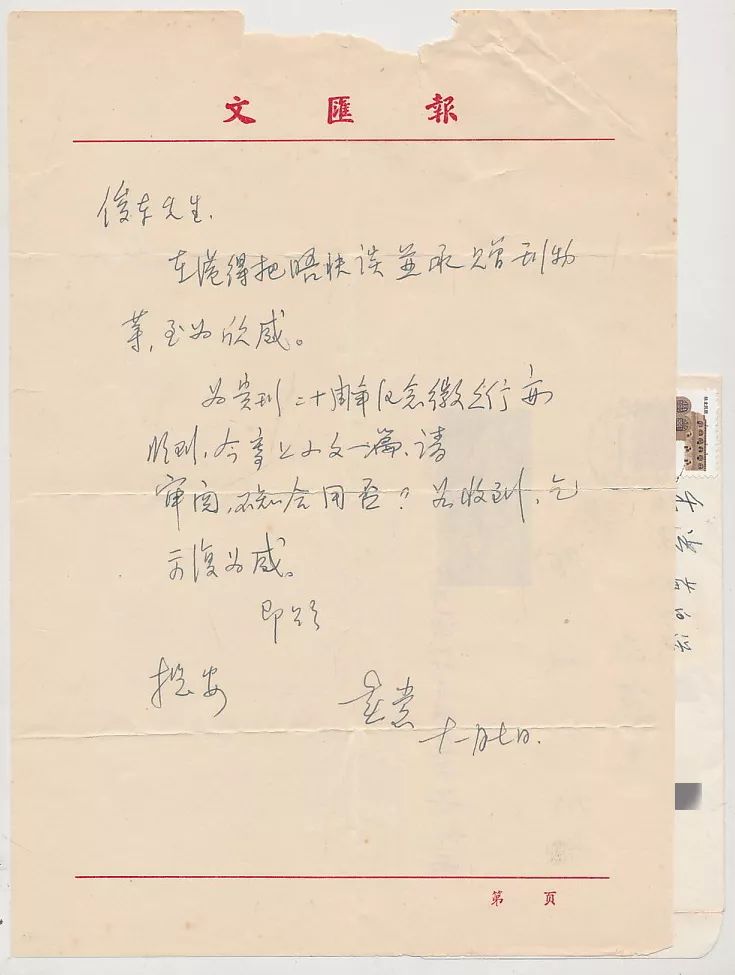 文匯報
俊东先生.
在港得把晤快谈並承贈刊物
,至为欣感。
为贵刊二十周年纪念徵文
收到,今寄上小文一篇,请
审阅,不知合用否?若收到,乞
示復为感。
即颂
撰安
十一月七日.
第 页